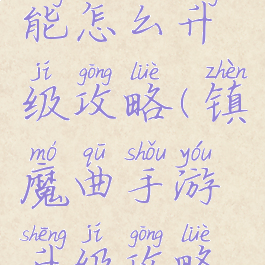 能怎么升
jí gōng lüè zhèn
级攻略(镇
mó qū shǒu yóu
魔曲手游
shēng jí gōng lüè
升级攻略